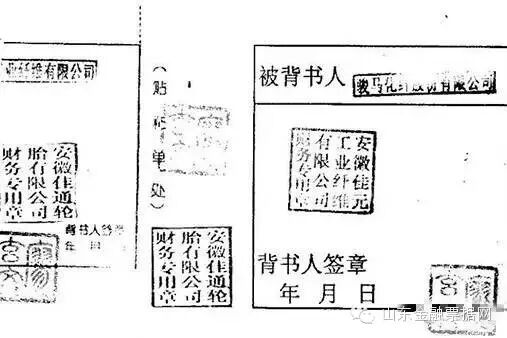 业纤维有限公司
安徽佳通轮
胎有限公司
财务专用章
背书人签章
年 月
(贴
单
处)
安徽佳通轮
胎有限公司
财务专用章
被背书人
骏马化纤股份有限公司
安徽佳元
工业纤维
有限公司
财务专用章
背书人签章
年 月 日
山东金融票据网